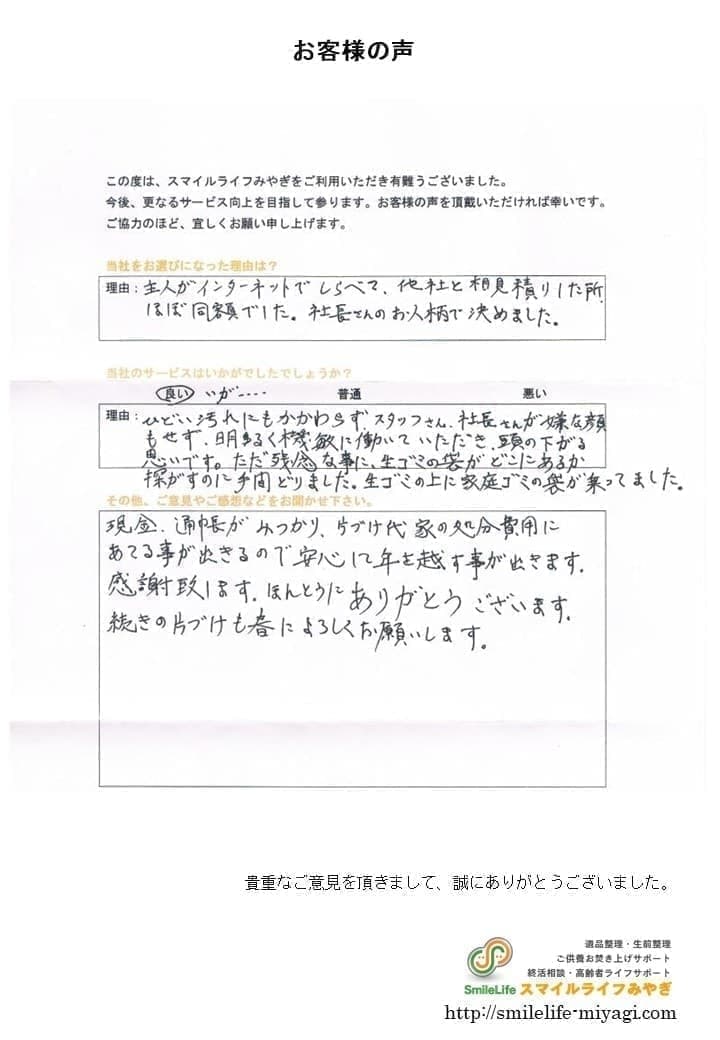 お客様の声
この度は、スマイルライフみやぎをご利用いただき有難うございました。
今後、更なるサービス向上を目指して参ります。お客様の声を頂戴いただければ幸いです。
ご協力のほど、宜しくお願い申し上げます。
当社をお選びになった理由は？
理由：主人がインターネットでしらべて、他社と相見積りした所、
ほぼ同額でした。社長さんのお人柄で決めました。
当社のサービスはいかがでしたでしょうか？
良い いが…… 普通 悪い
理由：ひどい汚れにもかかわらず、スタッフさん、社長さんが嫌な顔
もせず、明るく機敏に働いていただき、頭の下がる
思いです。ただ残念な事に、生ゴミの袋がどこにあるか
探がすのに手間どりました。生ゴミの上に家庭ゴミの袋が乗ってました。
その他、ご意見やご感想などをお聞かせ下さい。
現金、通帳がみつかり、片づけ代 家の処分費用に
あてる事が出きるので安心して年を越す事が出きます。
感謝致します。ほんとうにありがとうございます。
続きの片づけも春によろしくお願いします。
貴重なご意見を頂きまして、誠にありがとうございました。
遺品整理・生前整理
ご供養お焚き上げサポート
終活相談・高齢者ライフサポート
SmileLife スマイルライフみやぎ
http://smilelife-miyagi.com